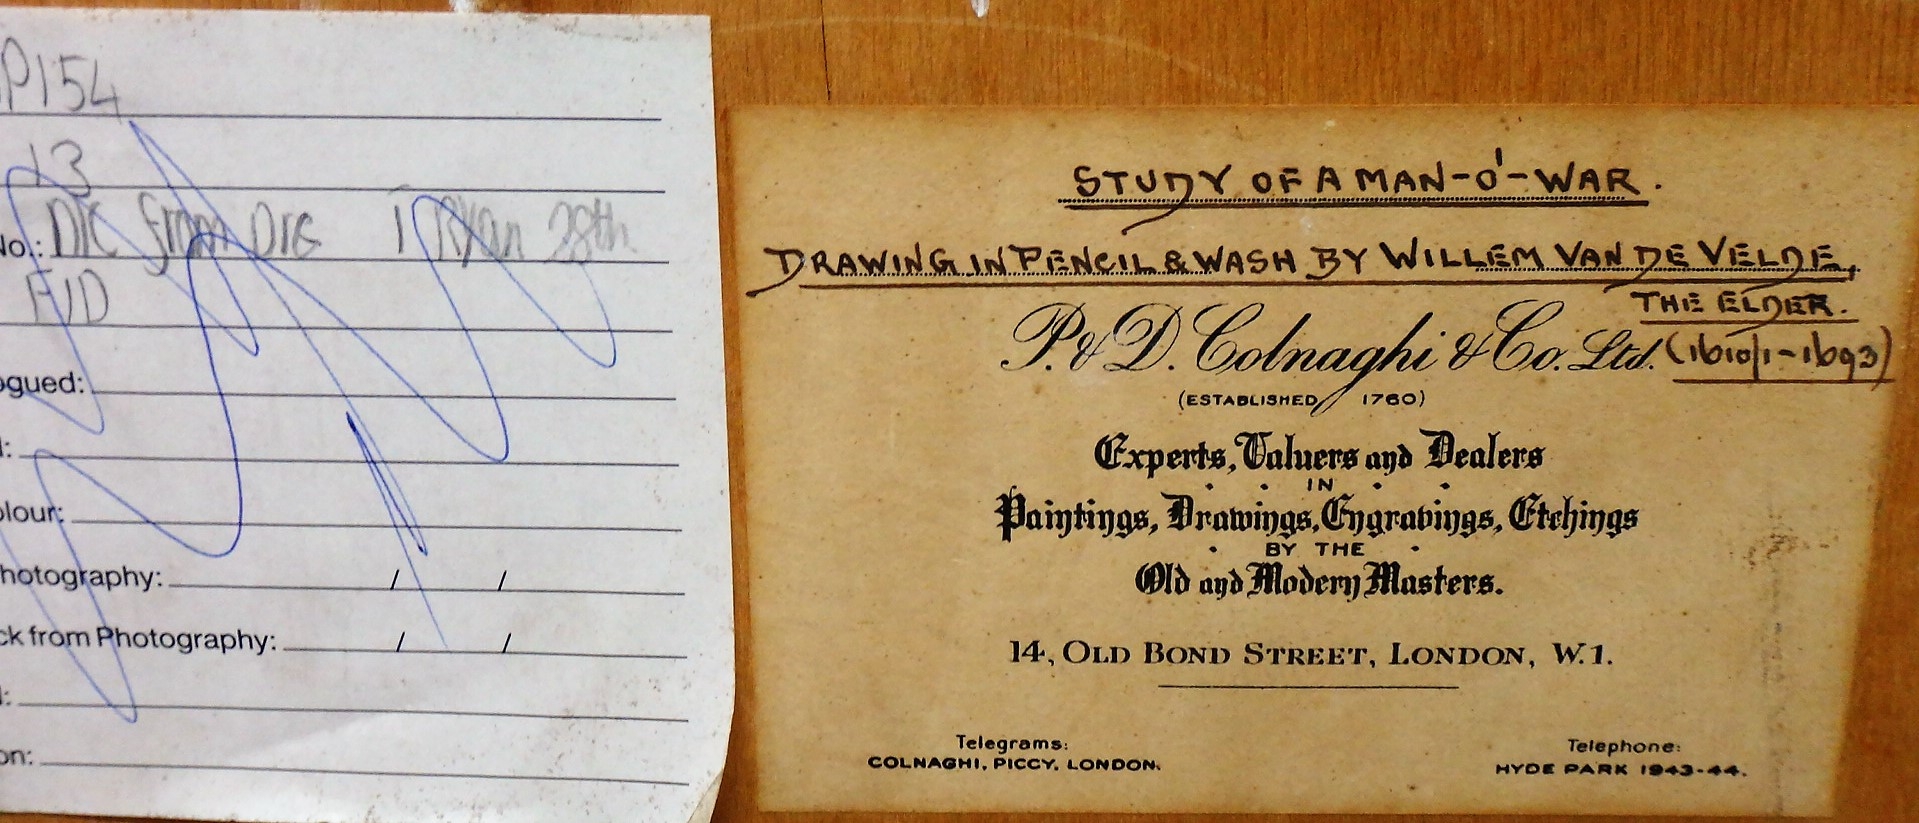 P154
13
No.: DIC from DRG T Ryan 28th
FID
ogued:
d:
olour:
hotography: / /
ck from Photography: / /
d:
on:
STUDY OF A MAN-O'-WAR.
DRAWING IN PENCIL & WASH BY WILLEM VAN DE VELDE,
THE ELDER.
P. & D. Colnaghi & Co. Ltd. (1610/1-1693)
(ESTABLISHED 1760)
Experts, Valuers and Dealers
IN
Paintings, Drawings, Engravings, Etchings
BY THE
Old and Modern Masters.
14, OLD BOND STREET, LONDON, W.1.
Telegrams:
COLNAGHI, PICCY, LONDON.
Telephone:
HYDE PARK 1943-44.